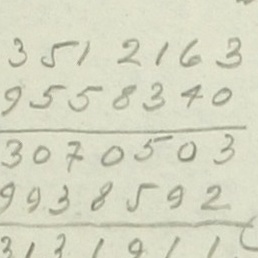 351 2163
9558340
3070503
9938592
3131911